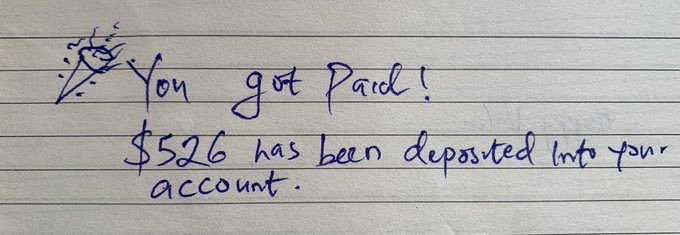 You got Paid!
$526 has been deposited into your
account.